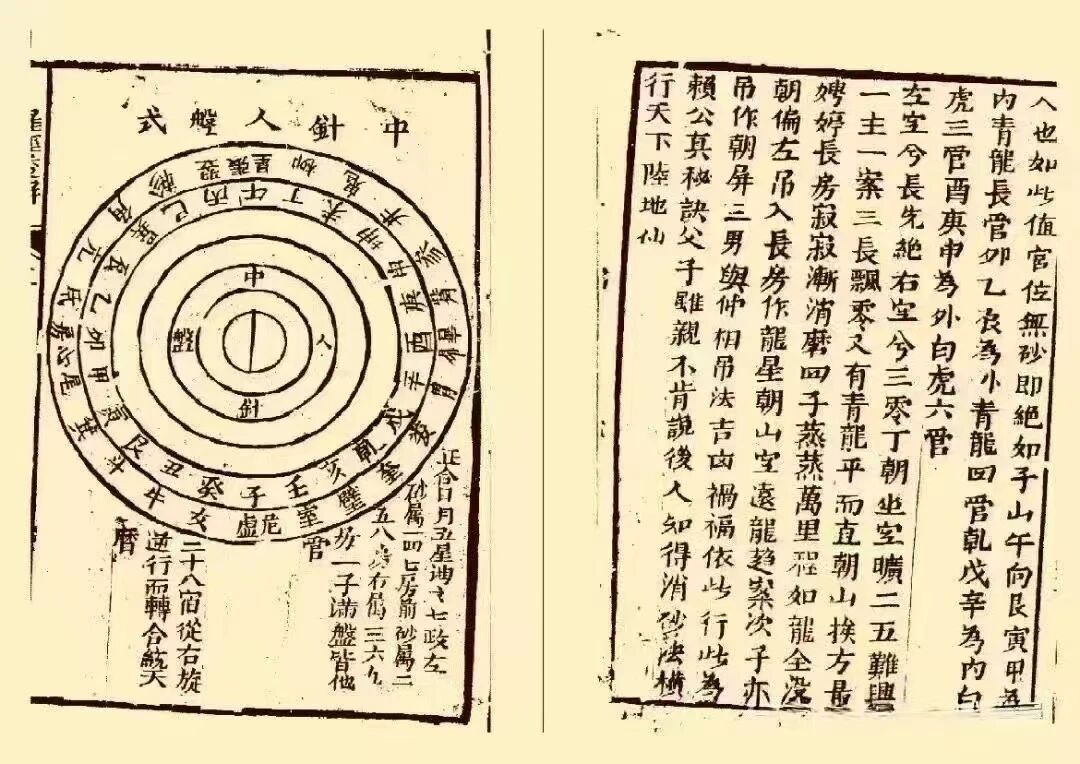 人也如此值宮位無砂即絕如子山午向艮寅甲為
内青龍長管卯乙辰為小青龍四管乾戌辛為内白
虎三管酉庚申為外白虎六管
左空兮長先絕右空兮三零丁朝坐空曠二五難興
一主一案三長飄零又有青龍平而直朝山挨方最
娉婷長房寂寂漸消磨四子蒸蒸萬里程如龍全没
朝偏左吊入長房作龍星朝山空遠龍趨案次子亦
吊作朝屏三男與仲相吊法吉凶禍福依此行此為
賴公真秘訣父子雖親不肯説後人知得消砂法橫
行天下陸地仙
中針人盤式
張星柳鬼井參觜畢昴胃婁奎璧室危虛女牛斗箕尾心房氐亢角軫翼
午丁未坤申庚酉辛戌乾亥壬子癸丑艮寅甲卯乙辰巽巳丙
中人針盤
正合日月五星七政左
砂属一四七房前砂属二
五八房右属三六九
一子满盤皆他
管
二十八宿從右旋
逆行而轉合統天
曆